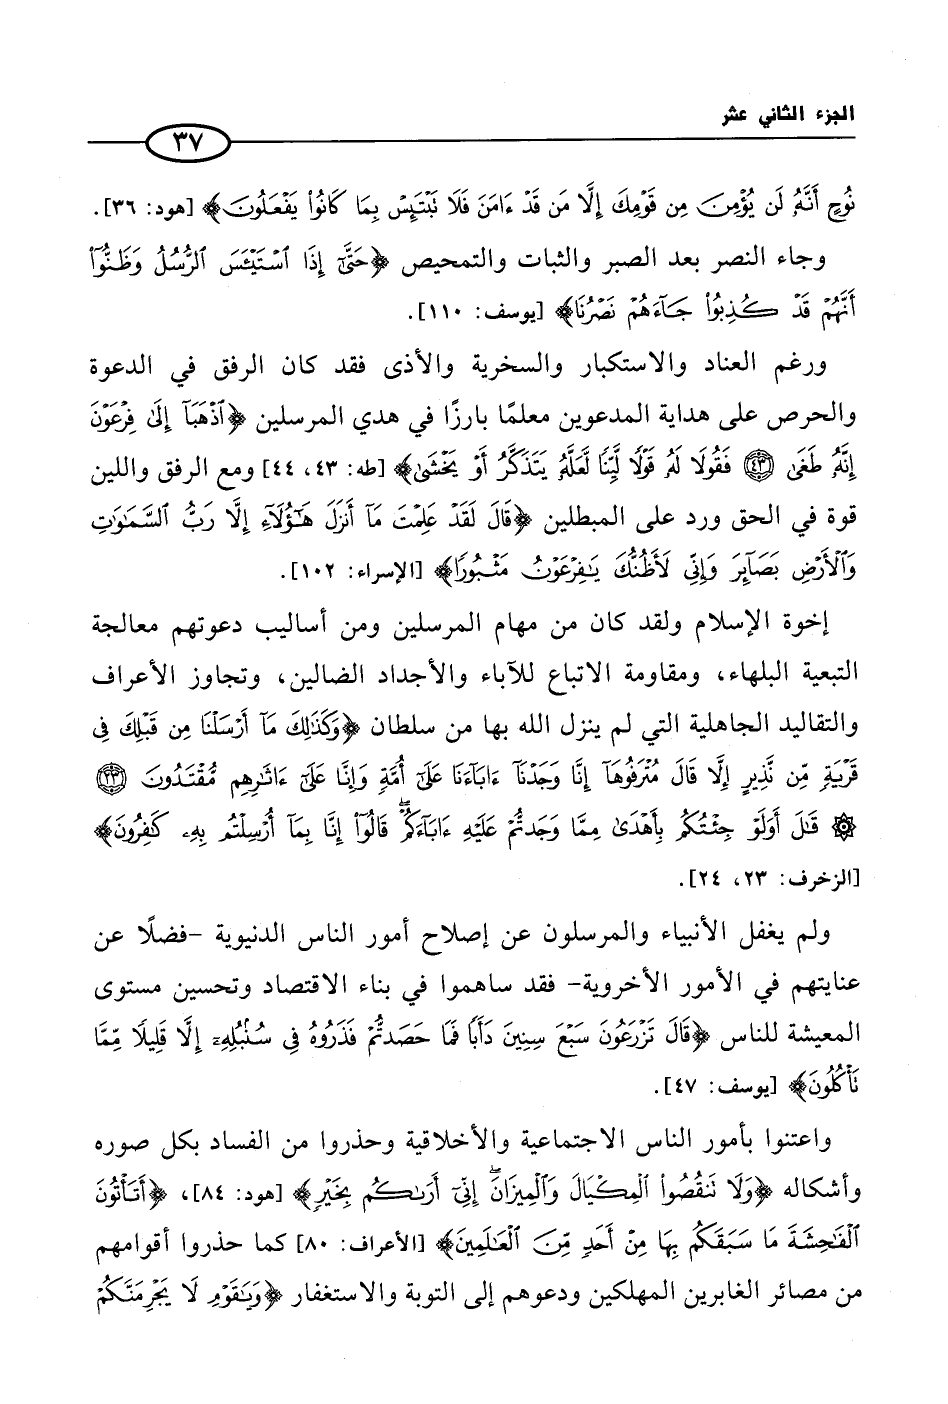 الجزء الثاني عشر
٣٧
نُوحٍ أَنَّهُۥ لَن يُؤْمِنَ مِن قَوْمِكَ إِلَّا مَن قَدْ ءَامَنَ فَلَا تَبْتَئِسْ بِمَا كَانُوا۟ يَفْعَلُونَ﴾ [هود: ٣٦].
وجاء النصر بعد الصبر والثبات والتمحيص ﴿حَتَّىٰٓ إِذَا ٱسْتَيْـَٔسَ ٱلرُّسُلُ وَظَنُّوٓا۟
أَنَّهُمْ قَدْ كُذِبُوا۟ جَآءَهُمْ نَصْرُنَا﴾ [يوسف: ١١٠].
ورغم العناد والاستكبار والسخرية والأذى فقد كان الرفق في الدعوة
والحرص على هداية المدعوين معلمًا بارزًا في هدي المرسلين ﴿ٱذْهَبَآ إِلَىٰ فِرْعَوْنَ
إِنَّهُۥ طَغَىٰ ٤٣ فَقُولَا لَهُۥ قَوْلًا لَّيِّنًا لَّعَلَّهُۥ يَتَذَكَّرُ أَوْ يَخْشَىٰ﴾ [طه: ٤٣، ٤٤] ومع الرفق واللين
قوة في الحق ورد على المبطلين ﴿قَالَ لَقَدْ عَلِمْتَ مَآ أَنزَلَ هَـٰٓؤُلَآءِ إِلَّا رَبُّ ٱلسَّمَـٰوَٰتِ
وَٱلْأَرْضِ بَصَآئِرَ وَإِنِّى لَأَظُنُّكَ يَـٰفِرْعَوْنُ مَثْبُورًا﴾ [الإسراء: ١٠٢].
إخوة الإسلام ولقد كان من مهام المرسلين ومن أساليب دعوتهم معالجة
التبعية البلهاء، ومقاومة الاتباع للآباء والأجداد الضالين، وتجاوز الأعراف
والتقاليد الجاهلية التي لم ينزل الله بها من سلطان ﴿وَكَذَٰلِكَ مَآ أَرْسَلْنَا مِن قَبْلِكَ فِى
قَرْيَةٍ مِّن نَّذِيرٍ إِلَّا قَالَ مُتْرَفُوهَآ إِنَّا وَجَدْنَآ ءَابَآءَنَا عَلَىٰٓ أُمَّةٍ وَإِنَّا عَلَىٰٓ ءَاثَـٰرِهِم مُّقْتَدُونَ ٢٣
۞ قَـٰلَ أَوَلَوْ جِئْتُكُم بِأَهْدَىٰ مِمَّا وَجَدتُّمْ عَلَيْهِ ءَابَآءَكُمْ ۖ قَالُوٓا۟ إِنَّا بِمَآ أُرْسِلْتُم بِهِۦ كَـٰفِرُونَ﴾
[الزخرف: ٢٣، ٢٤].
ولم يغفل الأنبياء والمرسلون عن إصلاح أمور الناس الدنيوية -فضلًا عن
عنايتهم في الأمور الأخروية- فقد ساهموا في بناء الاقتصاد وتحسين مستوى
المعيشة للناس ﴿قَالَ تَزْرَعُونَ سَبْعَ سِنِينَ دَأَبًا فَمَا حَصَدتُّمْ فَذَرُوهُ فِى سُنۢبُلِهِۦٓ إِلَّا قَلِيلًا مِّمَّا
تَأْكُلُونَ﴾ [يوسف: ٤٧].
واعتنوا بأمور الناس الاجتماعية والأخلاقية وحذروا من الفساد بكل صوره
وأشكاله ﴿وَلَا تَنقُصُوا۟ ٱلْمِكْيَالَ وَٱلْمِيزَانَ ۚ إِنِّىٓ أَرَىٰكُم بِخَيْرٍ﴾ [هود: ٨٤]، ﴿أَتَأْتُونَ
ٱلْفَـٰحِشَةَ مَا سَبَقَكُم بِهَا مِنْ أَحَدٍ مِّنَ ٱلْعَـٰلَمِينَ﴾ [الأعراف: ٨٠] كما حذروا أقوامهم
من مصائر الغابرين المهلكين ودعوهم إلى التوبة والاستغفار ﴿وَيَـٰقَوْمِ لَا يَجْرِمَنَّكُمْ